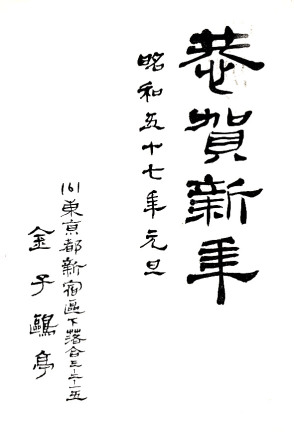 恭賀新年
昭和五十七年元旦
161東京都新宿區下落合三-二-一五
金子鷗亭